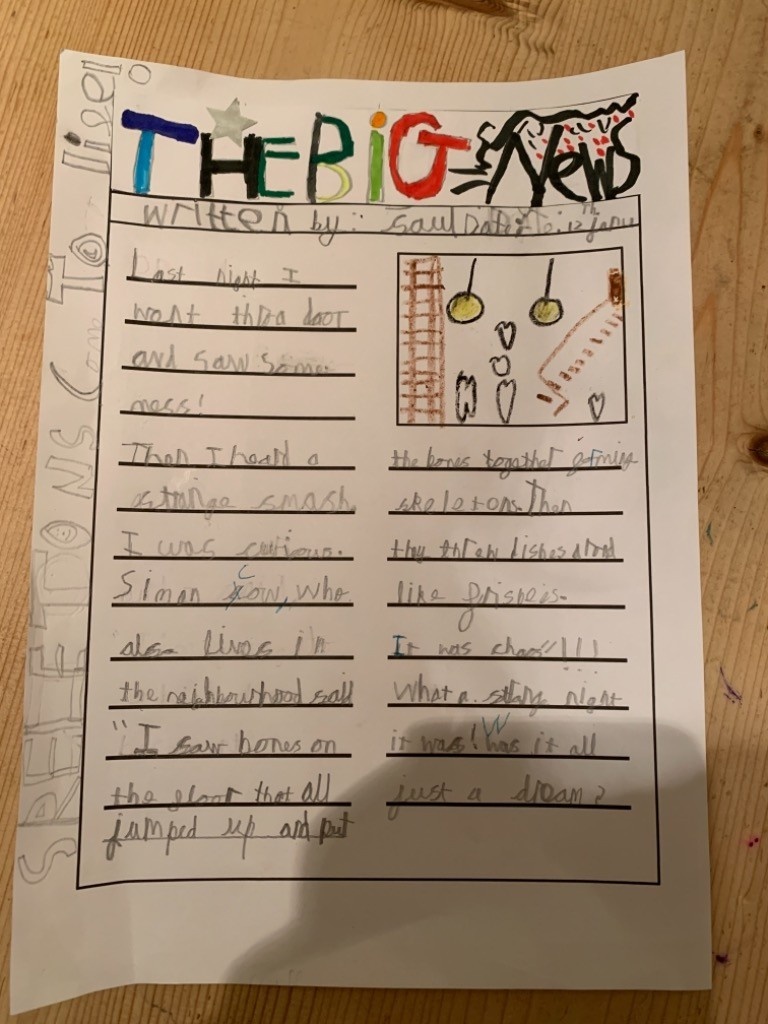 SKELETONS Com To
THE BiG NewS
written by: Saul Date: 12th janu
Last night I
want thro a door
and saw some
mess!
Then I heard a
strange smash.
I was curious.
Siman Cow, who
also lives in
the neighbourhood said
"I saw bones on
the floor that all
jumped up and put
the bones together forming
skeletons. Then
they threw dishes arond
like
It was chaos!!!
What a night
it was! Was it all
just a dream?